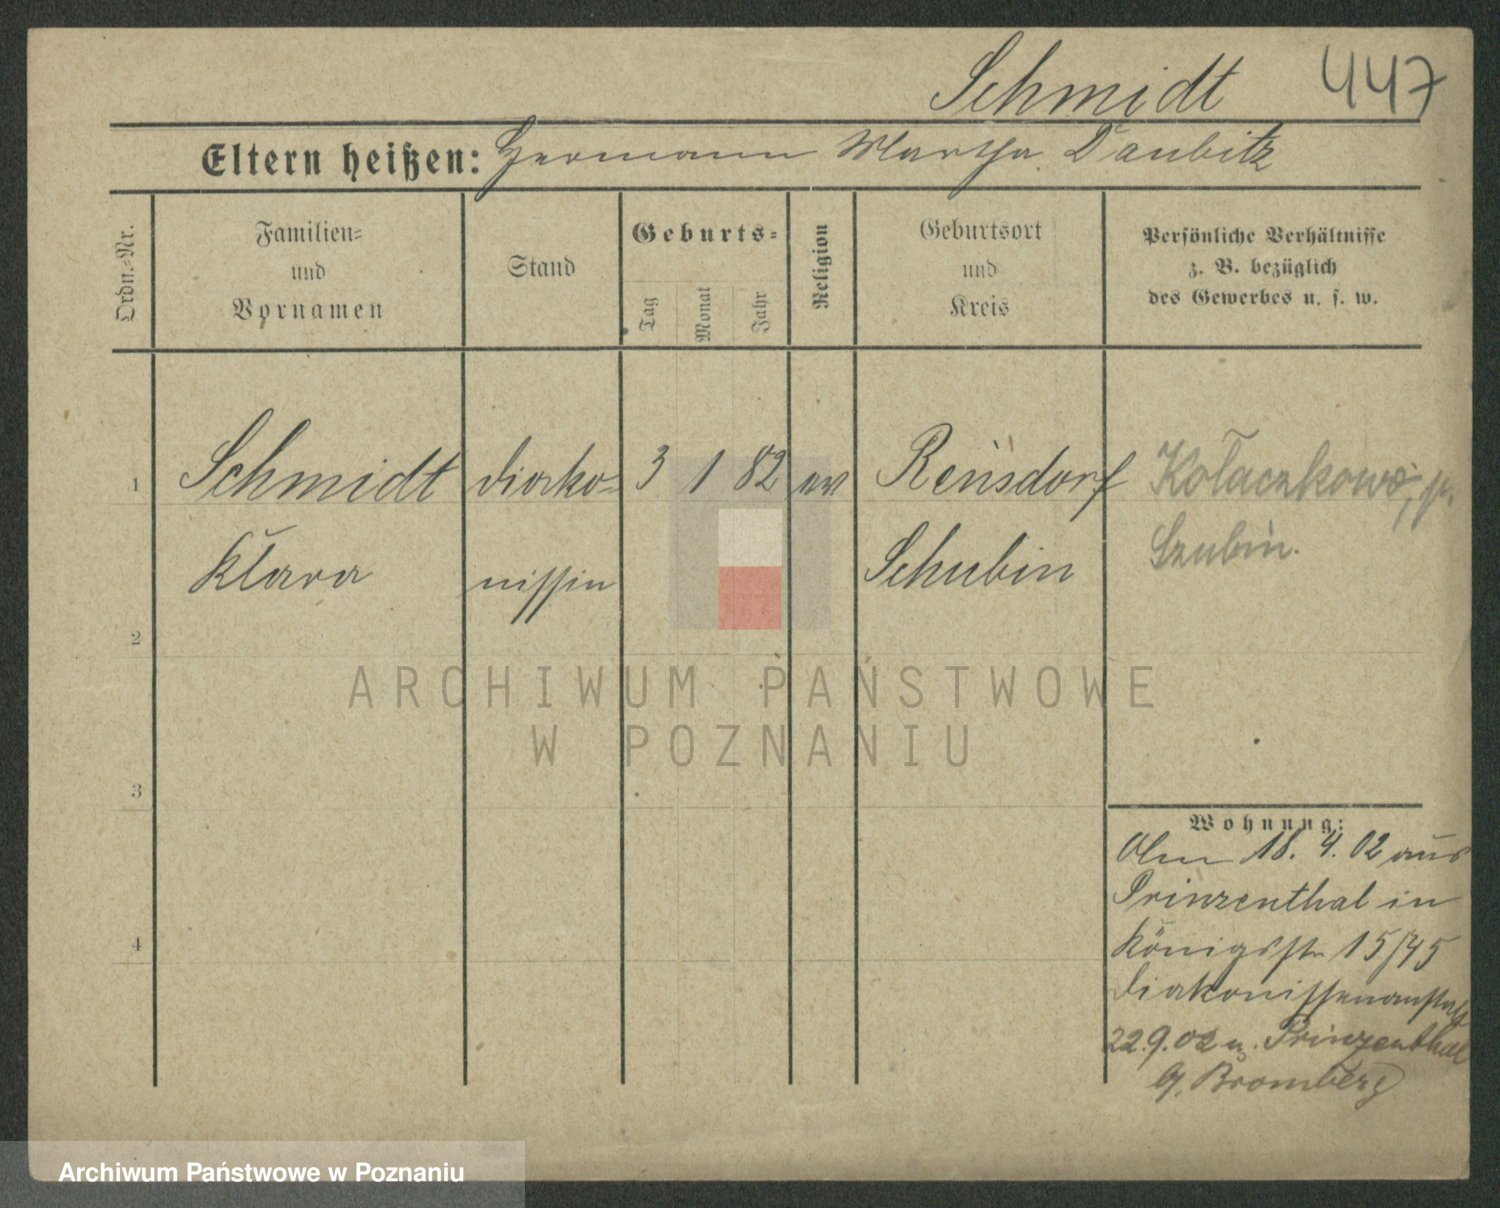 Schmidt 447
Eltern heißen: Hermann Martha Daubitz
Ordn.-Nr.
Familien-
und
Vornamen
Stand
Geburts-
Tag
Monat
Jahr
Religion
Geburtsort
und
Kreis
Persönliche Verhältnisse
z. B. bezüglich
des Gewerbes u. s. w.
1 Schmidt diako- 3 1 82 ev Reinsdorf Kołaczkowo, p.
Klara nissin Schubin Szubin.
2
ARCHIWUM PAŃSTWOWE
W POZNANIU
3
Wohnung:
18. 4. 02 aus
Prinzenthal in
4 Königsstr 15/45
Diakonissenanstalt
22.9.02 n. Prinzenthal
b/ Bromberg
Archiwum Państwowe w Poznaniu